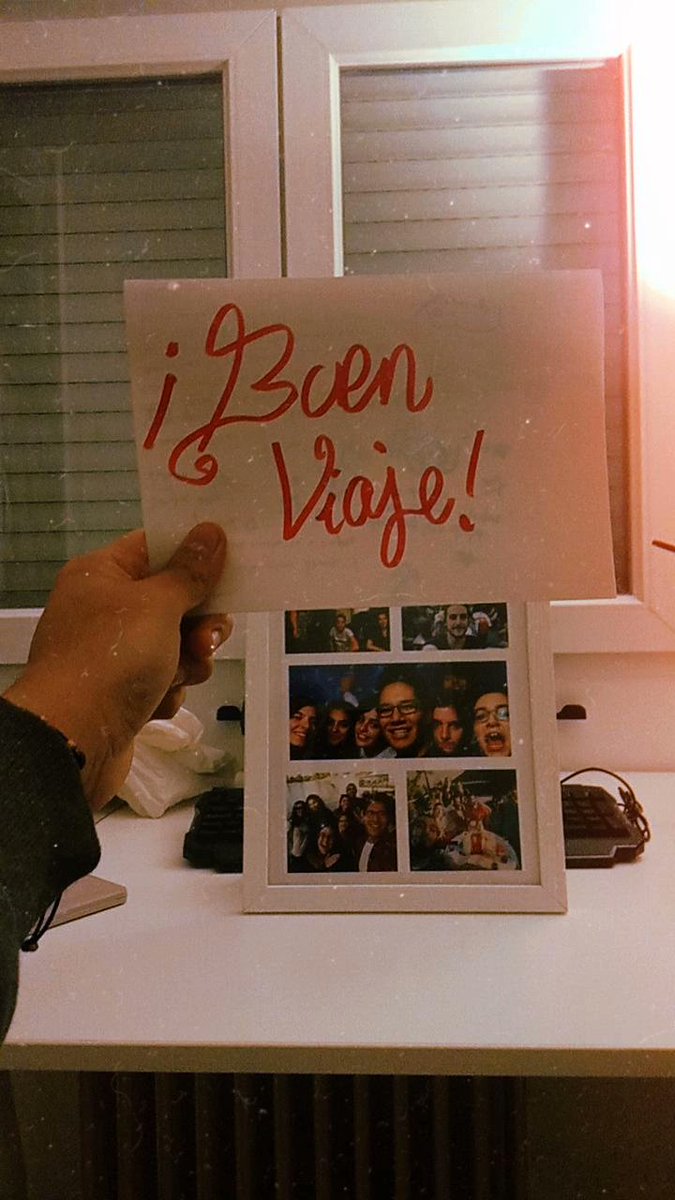 ¡Buen
Viaje!